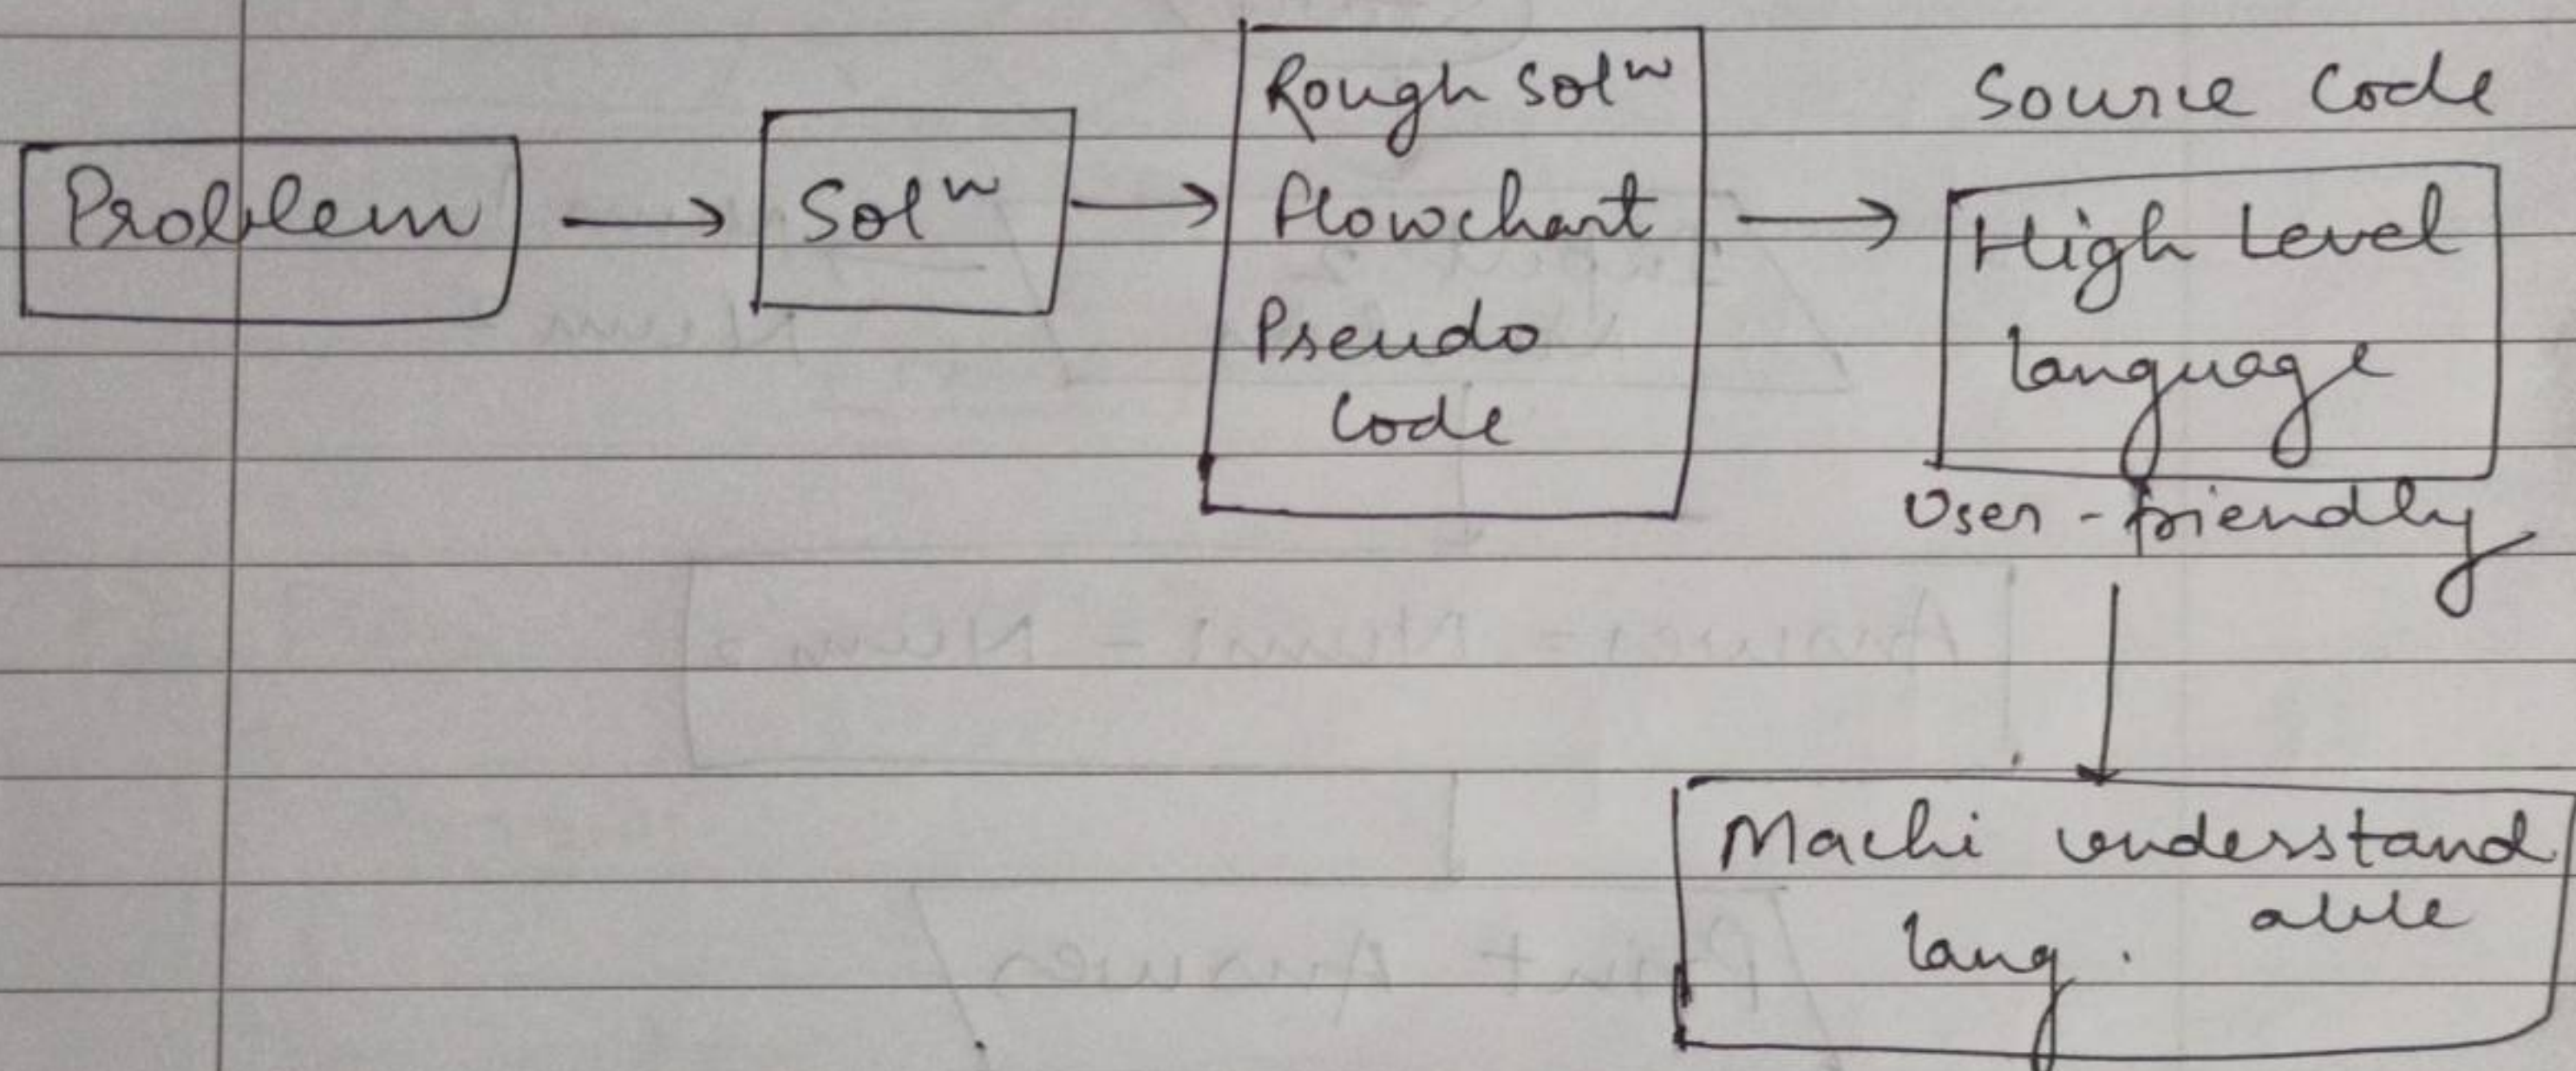 Problem
Solⁿ
Rough Solⁿ
flowchart
Pseudo
Code
Source Code
High Level
language
User-friendly
Machi understand
able
lang.